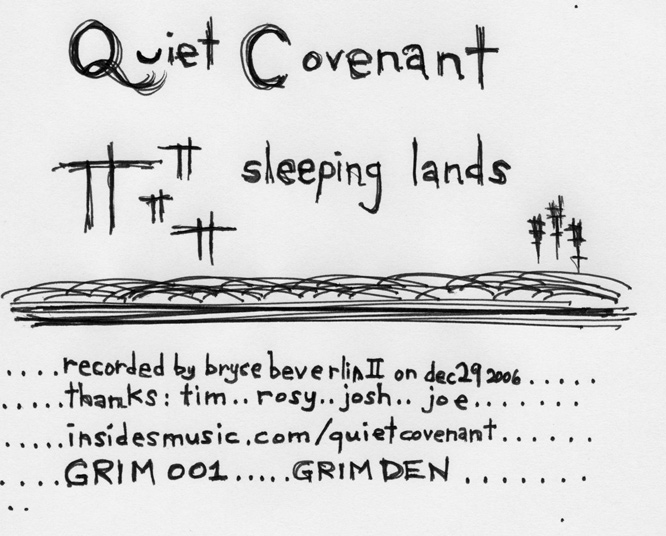 Quiet Covenant
sleeping lands
....recorded by bryce beverlin II on dec 29 2006.....
.....thanks: tim..rosy..josh..joe.......
.....insidesmusic.com/quietcovenant......
....GRIM 001.....GRIM DEN.......